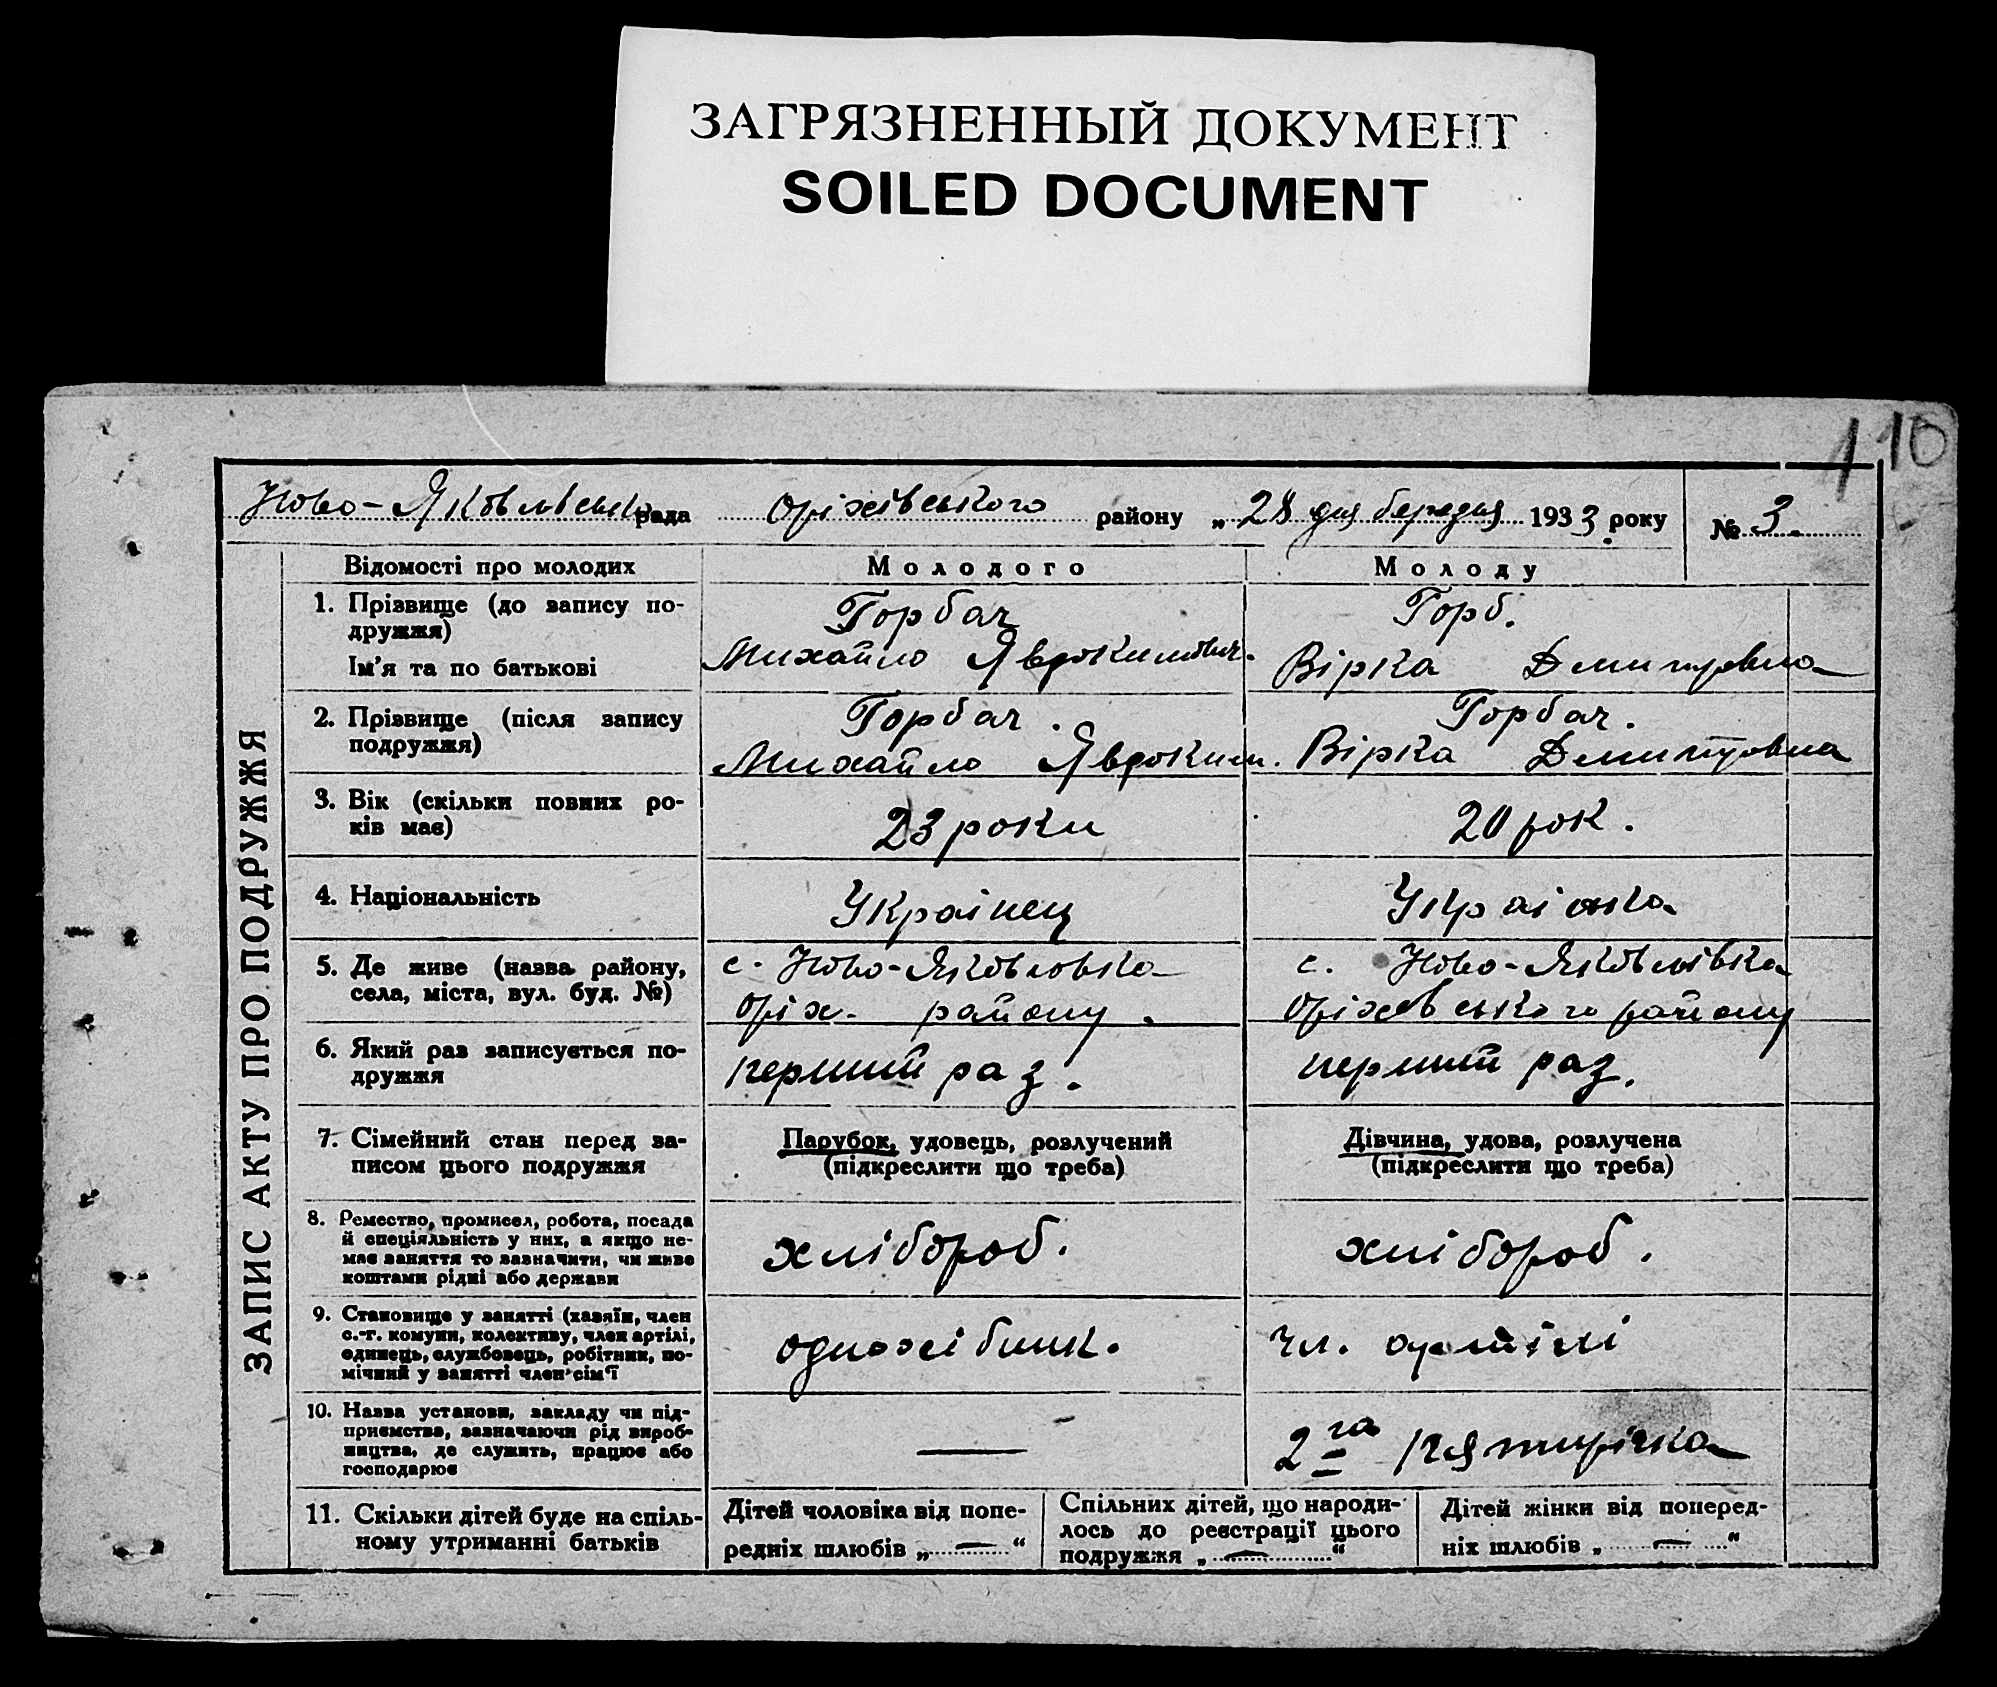 ЗАГРЯЗНЕННЫЙ ДОКУМЕНТ
SOILED DOCUMENT
110
Ново-Яковлівська рада Оріхівського району „28 дня березня 1933 року № 3.
ЗАПИС АКТУ ПРО ПОДРУЖЖЯ
Відомості про молодих Молодого Молоду
1. Прізвище (до запису по-
дружжя)
Ім'я та по батькові
Горбач
Михайло Явдокимович.
Горб.
Вірка Дмитровна
2. Прізвище (після запису
подружжя)
Горбач.
Михайло Явдоким.
Горбач.
Вірка Дмитровна
3. Вік (скільки повних ро-
ків має)
23 роки
20 рок.
4. Національність
Украінец
Украінка
5. Де живе (назва району,
села, міста, вул. буд. №)
с. Ново-Яковловка
Оріх. району.
с. Ново-Яковлівка
Оріховського району
6. Який раз записується по-
дружжя
перший раз.
перший раз.
7. Сімейний стан перед за-
писом цього подружжя
Парубок, удовець, розлучений
(підкреслити що треба)
Дівчина, удова, розлучена
(підкреслити що треба)
8. Ремество, промисел, робота, посада
й спеціяльність у них, а якщо не-
має заняття то зазначити, чи живе
коштами рідні або держави
хлібороб.
хлібороб.
9. Становище у занятті (хазяїн, член
с.-г. комуни, колективу, член артілі,
одинець, службовець, робітник, по-
мічний у занятті член сім'ї
одноосібник.
чл. артілі
10. Назва установи, закладу чи під-
приємства, зазначаючи рід вироб-
ництва, де служить, працює або
господарює
—
2га Пятирічка
11. Скільки дітей буде на спіль-
ному утриманні батьків
Дітей чоловіка від попе-
редніх шлюбів „—“
Спільних дітей, що народи-
лось до реєстрації цього
подружжя „—“
Дітей жінки від поперед-
ніх шлюбів „—“